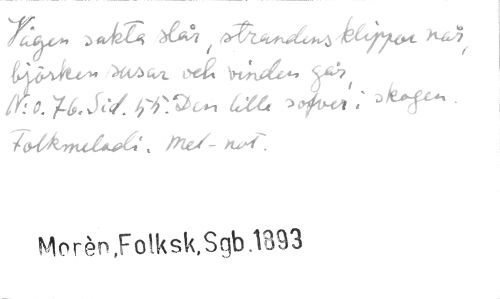 Vågen sakta slår, strandens klippor når,
björken susar och vinden går,
N:o. 76. Sid. 55. Den lille sofver i skogen.
Folkmelodi. Met-not.
Morèn,Folksk,Sgb.1893